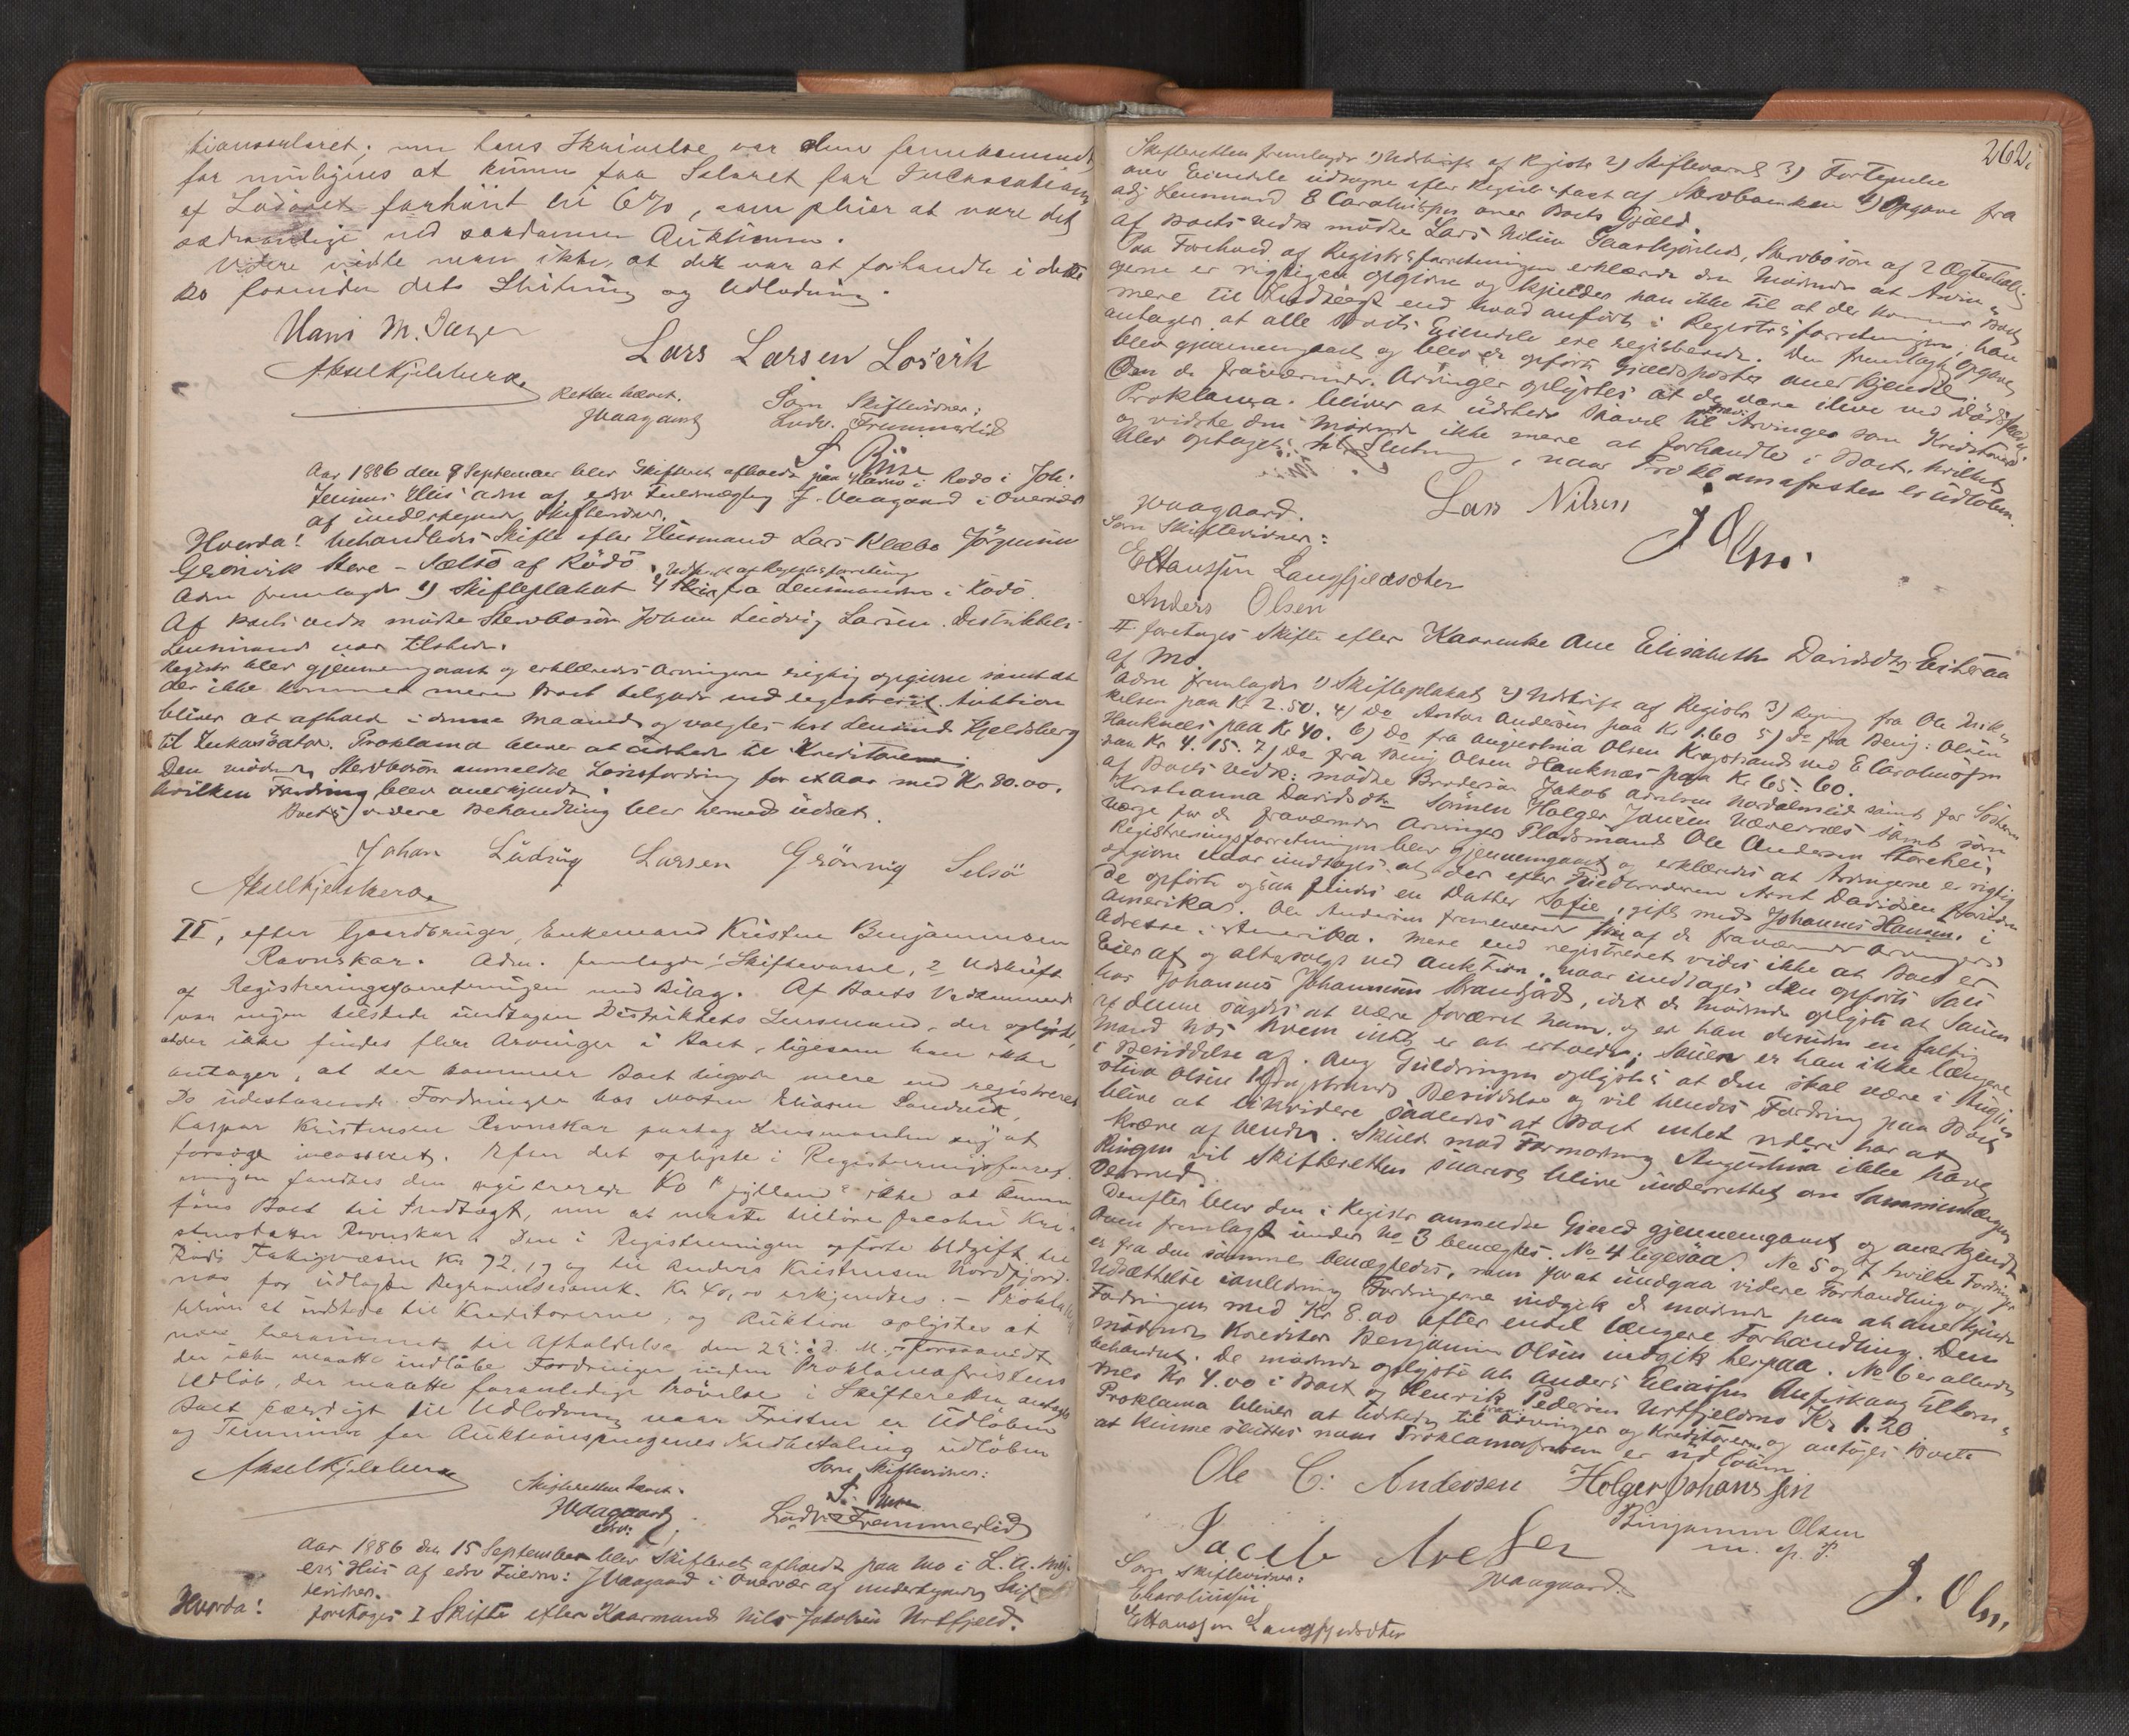 for muligens at kunne faa Salæret for Inkassation
af Lösöret forhöiet til 6 %, som pleier at være det
sædvanlige ved saadanne Auktioner.
Videre vidste man ikke, at der var at forhandle i dette
Bo forinden dets Slutning og Udlodning.
Hans M. Jager
Lars Larsen Losvik
Akselkjeldsberg
Retten hævet.
Som Skiftevidner:
JWaagaard
Ludv. Tremmerlid
S Riise
Aar 1886 den 9 September blev Skifteret afholdt paa Havn i Rödö i Joh:
Jensens Huis adm af edsv Fuldmægtig J. Waagaard i Overvær
af undertegnede Skiftevidner.
Hvorda! behandledes Skifte efter Huusmand Lars Klæbo Jörgensen
Grönvik Store-Sælsö af Rödö. Udskrift af Registrforretning
Adm fremlagde 1) Skifteplakat 2) fra Lensmanden i Rödö.
Af Boets vedk mödte Stervbosön Johan Ludvig Larsen. Distriktets
Lensmand var tilstede.
Registr blev gjennemgaaet og erklæredes Arvingerne rigtig opgivne samt at
der ikke kommer mere Boet tilgode end registreret. Auktion
bliver at afholde i denne Maaned og valgtes hos Lensmd Kjeldsberg
til Inkassator. Proklama bliver at udstede til Kreditorerne.
Den mödende Stervbosön anmeldte Lönsfordring for et Aar med Kr 80.00,
hvilken Fordring blev anerkjendt.
Boets videre Behandling blev hermed udsat.
Johan Ludvig Larsen Grönvig Selsö
Akselkjeldsberg
II, efter Gaardbruger, Enkemand Kristen Benjaminsen
Ravnskar. Adm. fremlagde 1 Skiftevarsel, 2 Udskrift
af Registreringsforretningen med Bilag. Af Boets Vedkommende
var ingen tilstede undtagen Distriktets Lensmand, der oplyste,
at der ikke findes flere Arvinger i Boet, ligesom han ikke
antager, at der kommer Boet tilgode mere end registreret.
De udestaaende Fordringer hos Morten Eliasen Sandvik,
Kaspar Kristensen Ravnskar paatog Lensmanden sig at
forsöge incasseret. Efter det oplyste i Registreringsforret-
ningen fandtes den registrerede Ko "Jylland" ikke at kunne
föres Boet til Indtægt, men at maatte tilhöre Jacobin Kri-
stensdatter Ravnskar. Den i Registreringen opförte Udgift til
Rödö Fattigvæsen Kr 72.19 og til Anders Kristensen Nordfjord-
nes for udlagte Begravelsesomk. Kr 40,00 erkjendtes. - Proklama
bliver at udstede til Kreditorerne, og Auktion oplystes at
være berammet til Afholdelse den 22. d. M. - Forsaavidt
der ikke maatte indlöbe Fordringer inden Proklamafristens
Udlöb, der maatte foranledige Prövelse i Skifteretten, antages
Boet færdigt til Udlodning naar Fristen er Udlöben
og Terminen for Auktionspengenes Indbetaling udlöben
Akselkjeldsberg
Skifteretten hævet.
Som Skiftevidner:
JWaagaard
edsv:
S. Riise
Ludvig Tremmerlid
Aar 1886 den 15 September blev Skifteret afholdt paa Mo i L. A. Mey-
ers Huis af edsv Fuldm: JWaagaard i Overvær af undertegnede Skif-
tevidner.
Hvorda! foretoges I Skifte efter Kaarmand Nils Jakobsen Urtfjeld.
262
Skifteretten fremlagde 1) Udskrift af Registr 2) Skiftevarsel 3) Fortegnelse
over Eiendele udtagne efter Registr-Taxt af Stervboenken 4) Opgave fra
adj Lensmand E Caroliussen over Boets Gjæld.
af Boets vedk mödte Lars Nilsen, Stervbosön af 2 Ægteskab
Paa Forehold af Registrsforretningen erklærede den Mödende at Arvin-
gerne er rigtigen opgivne og kjender han ikke til at der kommer Boet
mere til Indtægt end hvad anfört i Registrsforretningen; han
antager at alle Boets Eiendele ere registrerede. Den fremlagte Opgave
blev gjennemgaaet og blev de opförte Gjældsposter anerkjendte.
Om de fraværende Arvinger oplystes at de vare ilive ved Dödsfaldet.
Proklama bliver at udstede saavel til Arvinger som Kreditorer
og vidste den Mödende ikke mere at forhandle i Boet, hvilket
blev optaget til Slutning, naar Proklamafristen er udloben.
Lars Nilsen
JWaagaard.
Som Skiftevidner:
J Olsen
EHanssen Langfjeldsæter
Anders Olsen
II foretoges Skifte efter Kaarenke Ane Elisabeth Davidsdtr Eiteraa
af Mo.
Adm fremlagde 1) Skifteplakat 2) Udskrift af Registr 3) Regning fra Ole Mik-
kelsen paa Kr 2.50. 4) Do Anton Andersen paa Kr 1.60 5) Do fra Benj: Olsen
Hauknæs paa Kr 40. 6) Do fra Augustina Olsen Kragstrand ved E Caroliussen
paa Kr 4.15. 7) Do fra Benj Olsen Hauknæs paa Kr 65.60.
af Boets Vedk: mödte Brodersön Jakob Nordalmlid samt for Söster
Kristianna Davidsdtr Sönnen Holger Jansen Næværnæs samt som
Værge for de fraværende Arvinger Pladsmand Ole Andersen Storehei.
Registreringsforretningen blev gjennemgaaet og erklæredes at Arvingerne er rigtig
opgivne naar undtages at der efter Broderen Arnt Davidsen foruden
de opförte ogsaa findes en Datter Sofie, gift med Johannes Hansen, i
Amerika. Ole Andersen af de fraværende Arvingers
Adresse i Amerika. Mere end registreret vides ikke at Boet er
Eier af og alt solgt ved Auktion, naar undtages den opförte Sau
hos Johannes Johannesen Strandjord, idet de Mödende oplyste at Sauen
af denne sagdes at være foræret ham, og er han desuden en fattig
Mand hos hvem intet er at erholde; Sauen er han ikke længere
i Besiddelse af. Ang Guldringen oplystes at den skal være i Augu-
stina Olsen Kragstrands Besiddelse og vil hendes Fordring paa Boet
blive at likvidere saaledes at Boet intet videre har at
kræve af hende. Skulde mod Formodning Augustina ikke have
Ringen vil Skifteretten snarest blive underrettet om Sammenhængen
dermed.
Derefter blev den i Registr anmeldte Gjæld gjennemgaaet og anerkjendt.
Den fremlagt under No 3 benægtes. No 4 ligesaa. No 5 og 7 hvilke Fordringer
er fra den samme benægtedes, men for at undgaa videre Forhandling og
Udsættelse i anledning Fordringerne indgik de mödende paa at anerkjende
Fordringen med Kr 8.00 efter endel længere Forhandling. Den
mödende Kreditor Benjamin Olsen indgik herpaa. No 6 er allerede
behandlet. De mödende oplyste at Anders Eliassen Aufiskaug tilkom-
mer Kr 4.00 i Boet og Henrik Pedersen Urtfjeldmo Kr 1.20
Proklama bliver at Udstede til Arvinger og Kreditorer og antages Boet
at kunne sluttes naar Proklamafristen er udloben
Ole C. Andersen
Holger Johanssen
Binjamin Olsen
m. p. P.
Jacob
Som Skiftevidner:
JWaagaard.
ECaroliussen
J. Olsen
EHanssen Langfjeldsæter